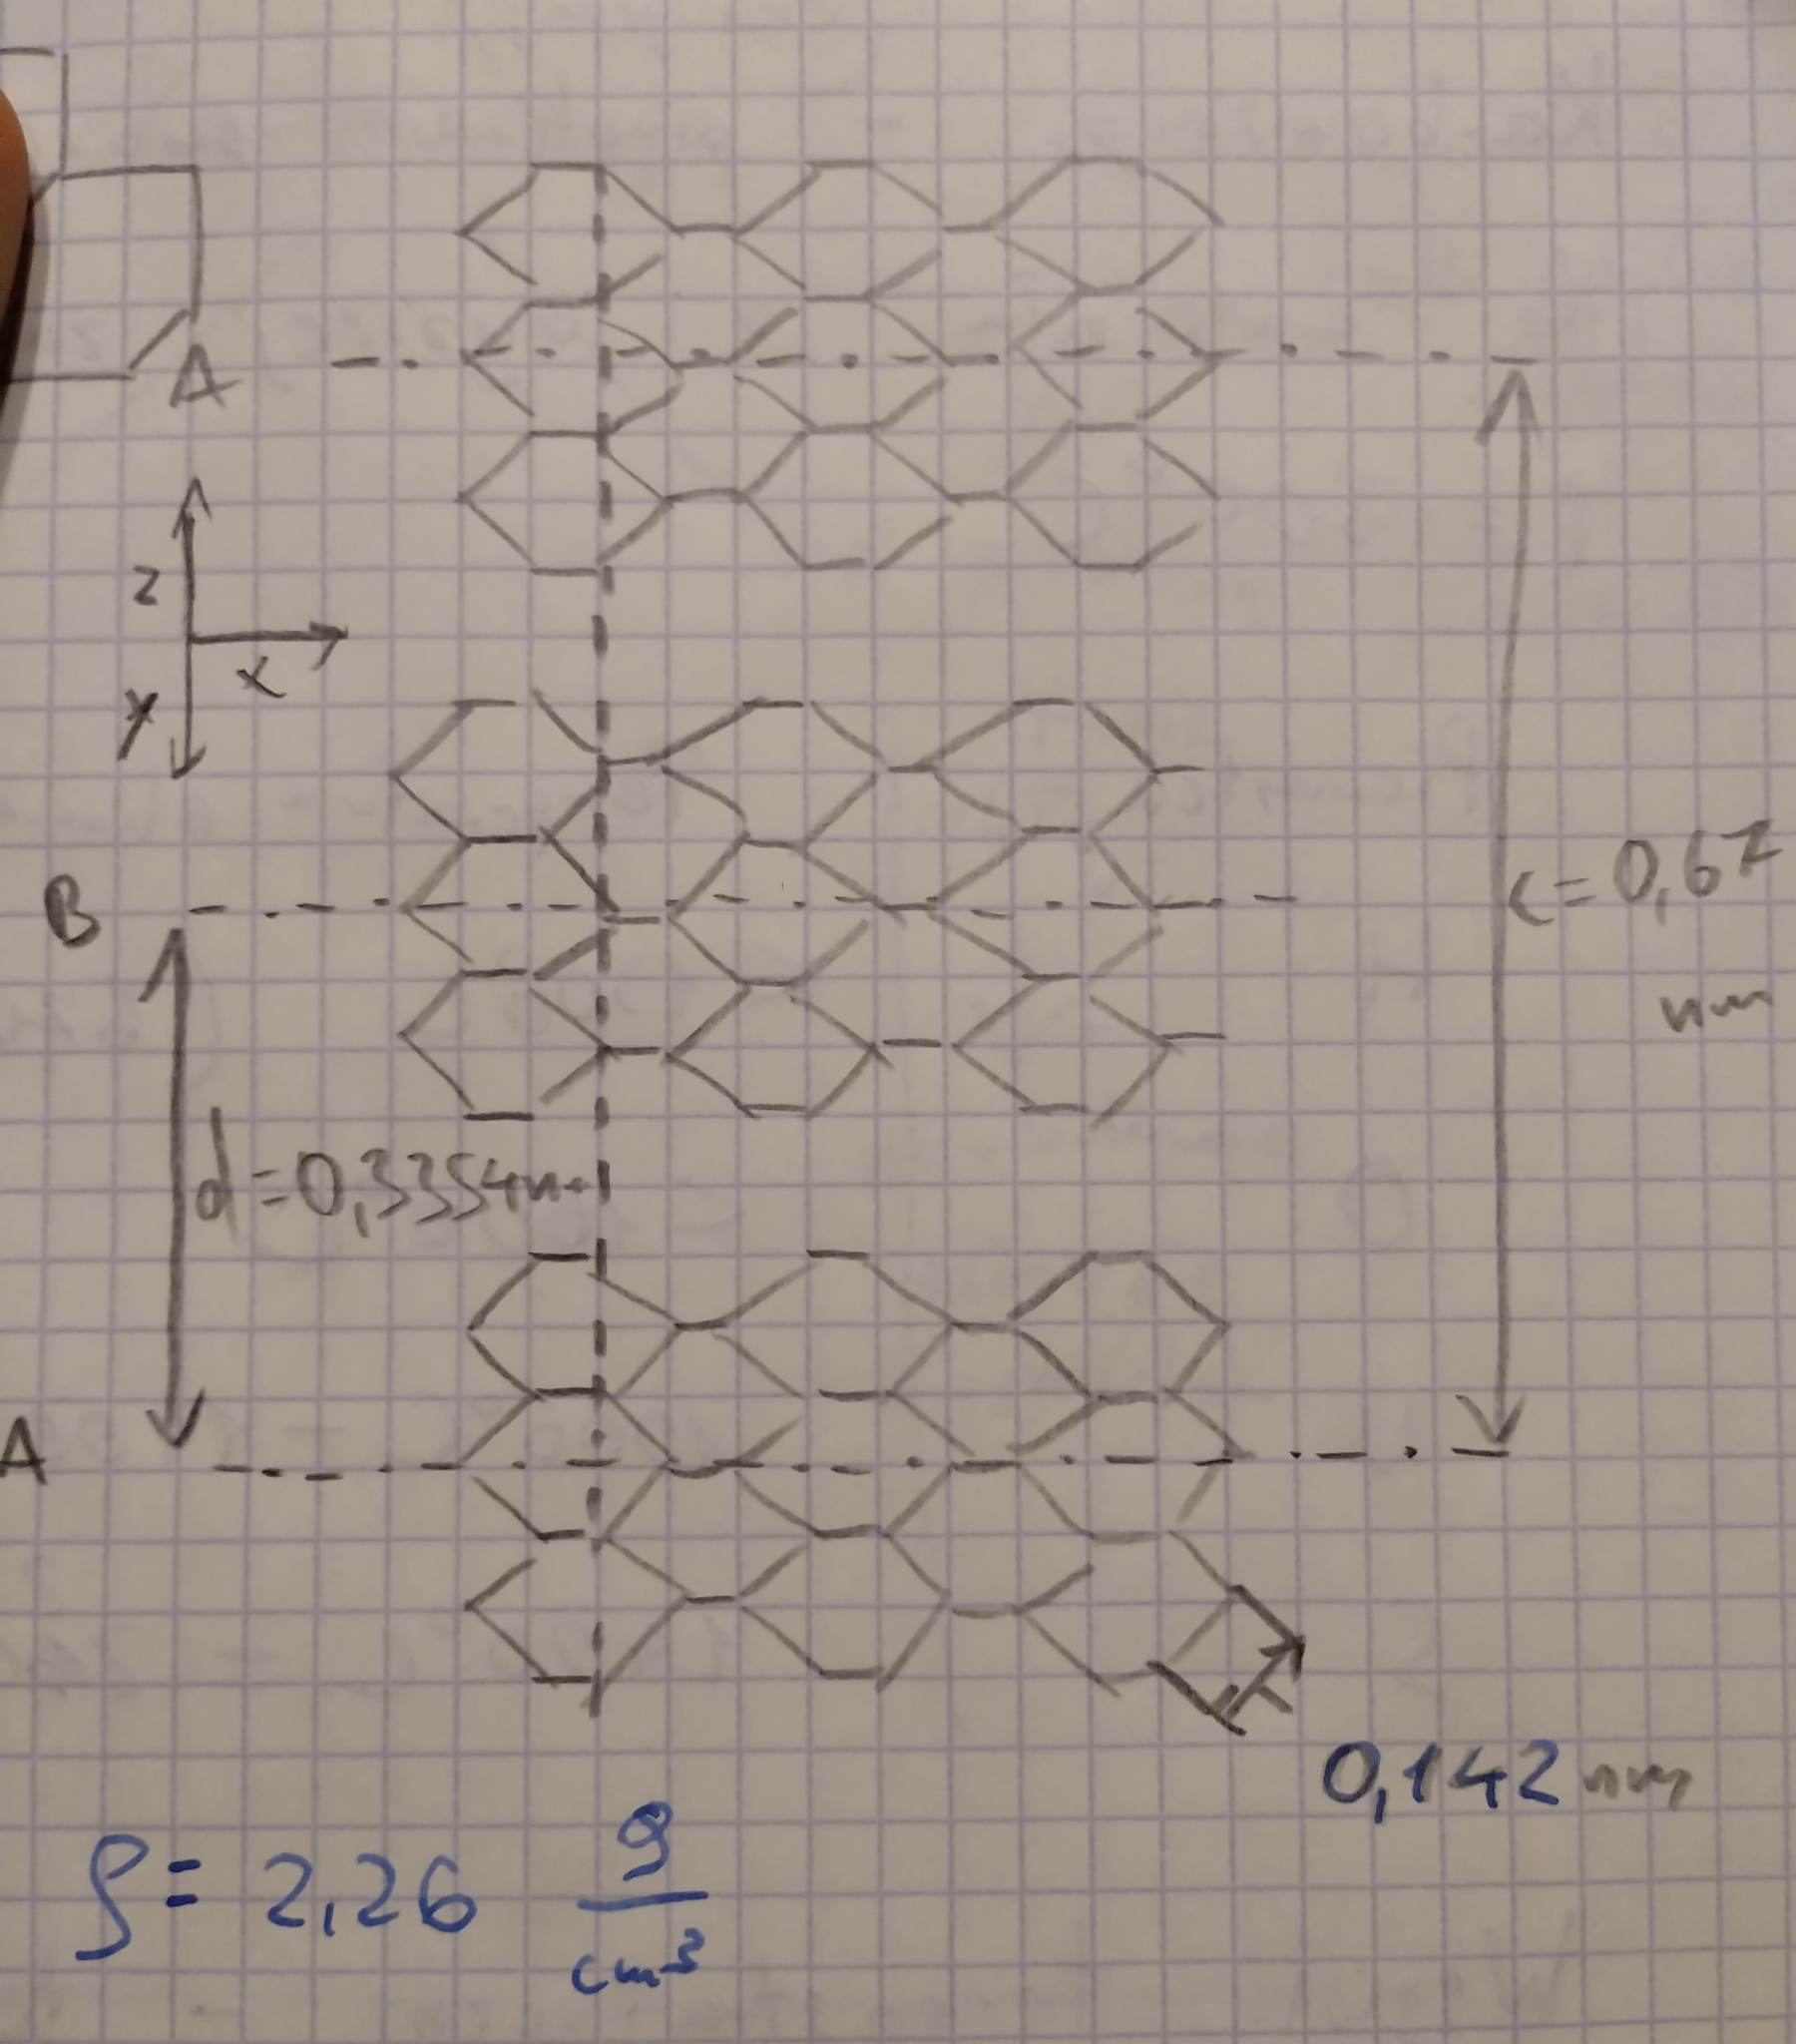 A
z
x
y
B
c = 0,67
nm
d = 0,3354 nm
A
0,142 nm
ρ = 2,26 g/cm³